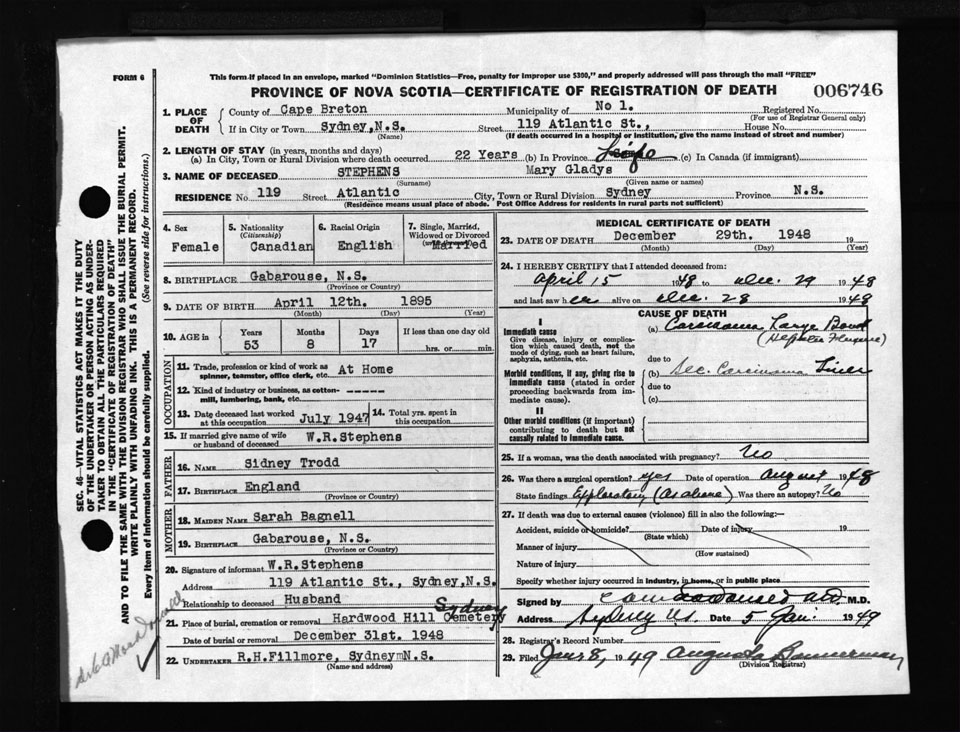 FORM 6
This form if placed in an envelope, marked "Dominion Statistics—Free, penalty for improper use $300," and properly addressed will pass through the mail "FREE"
PROVINCE OF NOVA SCOTIA—CERTIFICATE OF REGISTRATION OF DEATH 006746
1. PLACE OF DEATH
County of Cape Breton Municipality of No 1. Registered No.
(For use of Registrar General only)
If in City or Town Sydney,N.S. Street 119 Atlantic St., House No.
(Name) (If death occurred in a hospital or institution, give the name instead of street and number)
2. LENGTH OF STAY (in years, months and days)
(a) In City, Town or Rural Division where death occurred 22 Years (b) In Province Life (c) In Canada (if immigrant)
3. NAME OF DECEASED STEPHENS Mary Gladys
(Surname) (Given name or names)
RESIDENCE No 119 Street Atlantic City, Town or Rural Division Sydney Province N.S.
(Residence means usual place of abode. Post Office Address for residents in rural parts not sufficient)
4. Sex Female
5. Nationality (Citizenship) Canadian
6. Racial Origin English
7. Single, Married, Widowed or Divorced Married
8. BIRTHPLACE Gabarouse, N.S.
(Province or Country)
9. DATE OF BIRTH April 12th. 1895
(Month) (Day) (Year)
10. AGE in Years 53 Months 8 Days 17 If less than one day old hrs. or min.
OCCUPATION
11. Trade, profession or kind of work as spinner, teamster, office clerk, etc. At Home
12. Kind of industry or business, as cotton-mill, lumbering, bank, etc. ------
13. Date deceased last worked at this occupation July 1947
14. Total yrs. spent in this occupation
15. If married give name of wife or husband of deceased W.R.Stephens
FATHER
16. NAME Sidney Trodd
17. BIRTHPLACE England
(Province or Country)
MOTHER
18. MAIDEN NAME Sarah Bagnell
19. BIRTHPLACE Gabarouse, N.S.
(Province or Country)
20. Signature of informant W.R.Stephens
Address 119 Atlantic St., Sydney,N.S.
Relationship to deceased Husband
21. Place of burial, cremation or removal Hardwood Hill Cemetery Sydney
Date of burial or removal December 31st. 1948
22. UNDERTAKER R.H.Fillmore, SydneymN.S.
(Name and address)
MEDICAL CERTIFICATE OF DEATH
23. DATE OF DEATH December 29th. 1948 19
(Month) (Day) (Year)
24. I HEREBY CERTIFY that I attended deceased from:
April 15 1948 to Dec. 29 1948
and last saw her alive on Dec. 28 1948
CAUSE OF DEATH
I
Immediate cause (a) Carcinoma Large Bowel
Give disease, injury or complication which caused death, not the mode of dying, such as heart failure, asphyxia, asthenia, etc. (Hepatic Flexure)
due to
Morbid conditions, if any, giving rise to immediate cause (stated in order proceeding backwards from immediate cause). (b) Sec. Carcinoma Liver
due to
(c)
II
Other morbid conditions (if important) contributing to death but not causally related to immediate cause.
25. If a woman, was the death associated with pregnancy? No
26. Was there a surgical operation? yes Date of operation August 1948
State findings Exploratory (As above) Was there an autopsy? No
27. If death was due to external causes (violence) fill in also the following:—
Accident, suicide or homicide? Date of injury 19
(State which)
Manner of injury
(How sustained)
Nature of injury
Specify whether injury occurred in industry, in home, or in public place
Signed by M.D.
Address Sydney N.S. Date 5 Jan. 1949
28. Registrar's Record Number
29. Filed Jan 8, 1949 Augusta Bannerman
(Division Registrar)
SEC. 46—VITAL STATISTICS ACT MAKES IT THE DUTY
OF THE UNDERTAKER OR PERSON ACTING AS UNDER-
TAKER TO OBTAIN ALL THE PARTICULARS REQUIRED
IN THE "CERTIFICATE OF REGISTRATION OF DEATH"
AND TO FILE THE SAME WITH THE DIVISION REGISTRAR WHO SHALL ISSUE THE BURIAL PERMIT.
WRITE PLAINLY WITH UNFADING INK. THIS IS A PERMANENT RECORD.
Every item of information should be carefully supplied. (See reverse side for instructions.)